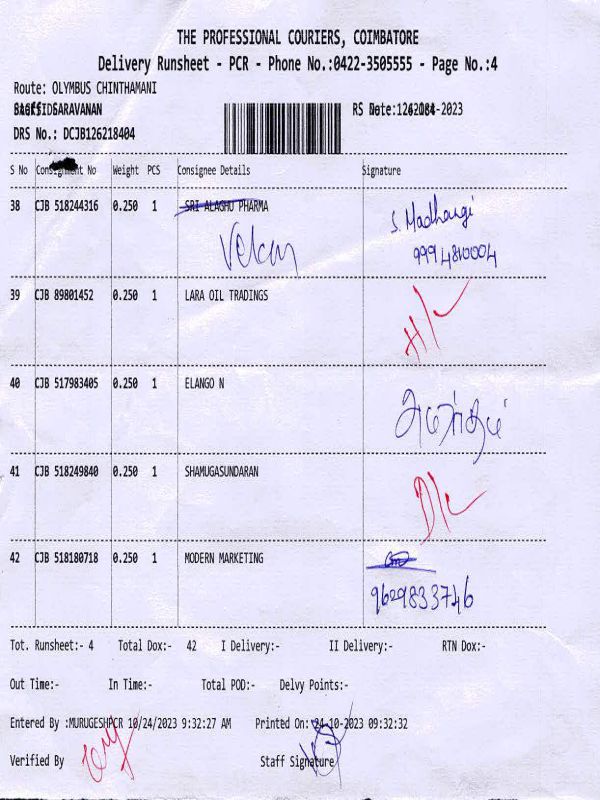 THE PROFESSIONAL COURIERS, COIMBATORE
Delivery Runsheet - PCR - Phone No.:0422-3505555 - Page No.:4
Route: OLYMBUS CHINTHAMANI
SARAVANAN
DRS No.: DCJB126218404
S No Consignment No Weight PCS Consignee Details Signature
38 CJB 518244316 0.250 1 SRI ALAGHU PHARMA
S. Madhangi
9994810004
39 CJB 89801452 0.250 1 LARA OIL TRADINGS
H/L
40 CJB 517983405 0.250 1 ELANGO N
41 CJB 518249840 0.250 1 SHAMUGASUNDARAN
D/L
42 CJB 518180718 0.250 1 MODERN MARKETING
9629833746
Tot. Runsheet:- 4 Total Dox:- 42 I Delivery:- II Delivery:- RTN Dox:-
Out Time:- In Time:- Total POD:- Delvy Points:-
Entered By :MURUGESHPCR 10/24/2023 9:32:27 AM Printed On: 24-10-2023 09:32:32
Verified By Staff Signature